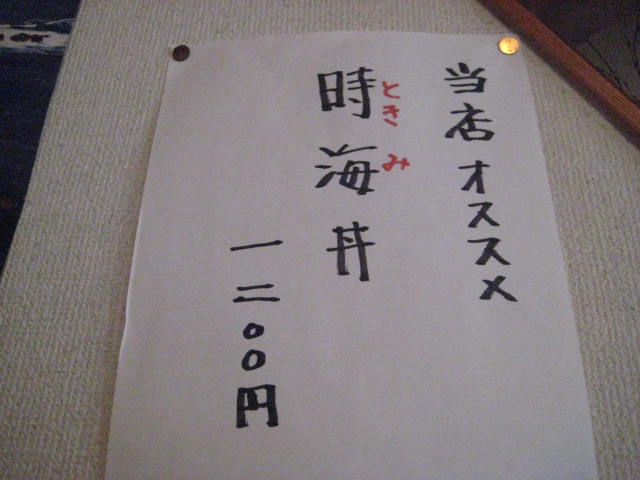 当店オススメ
ときみ
時海丼
一二〇〇円